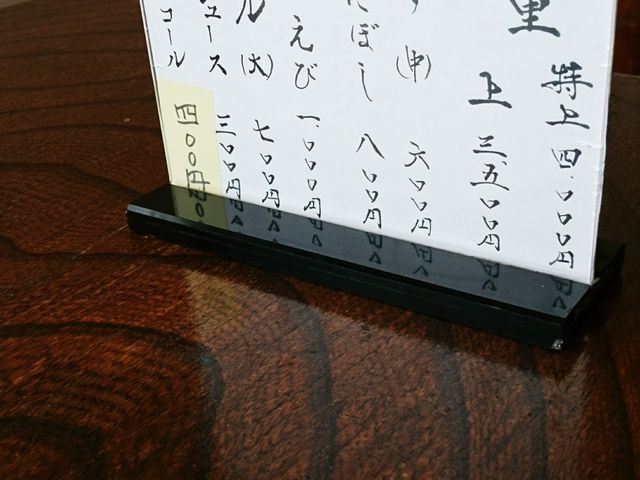 重
特上 四、〇〇〇円
上 三、五〇〇円
(中) 六〇〇円
にぼし 八〇〇円
えび 一、〇〇〇円
ル(大) 七〇〇円
ュース 三〇〇円
コール 四〇〇円